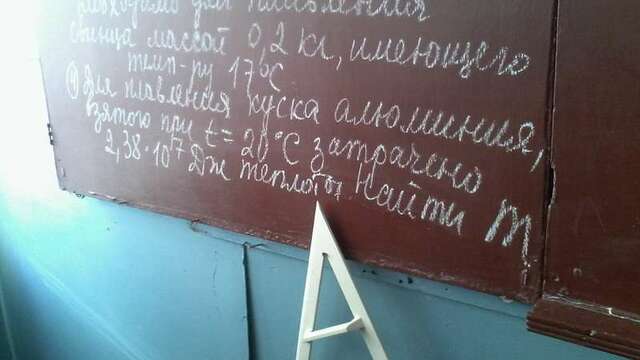 необходимо для плавления
свинца массой 0,2 кг, имеющего
темп-ру 17°C
4) Для плавления куска алюминия,
взятого при t = 20°C затрачено
2,38·10⁷ Дж теплоты. Найти m